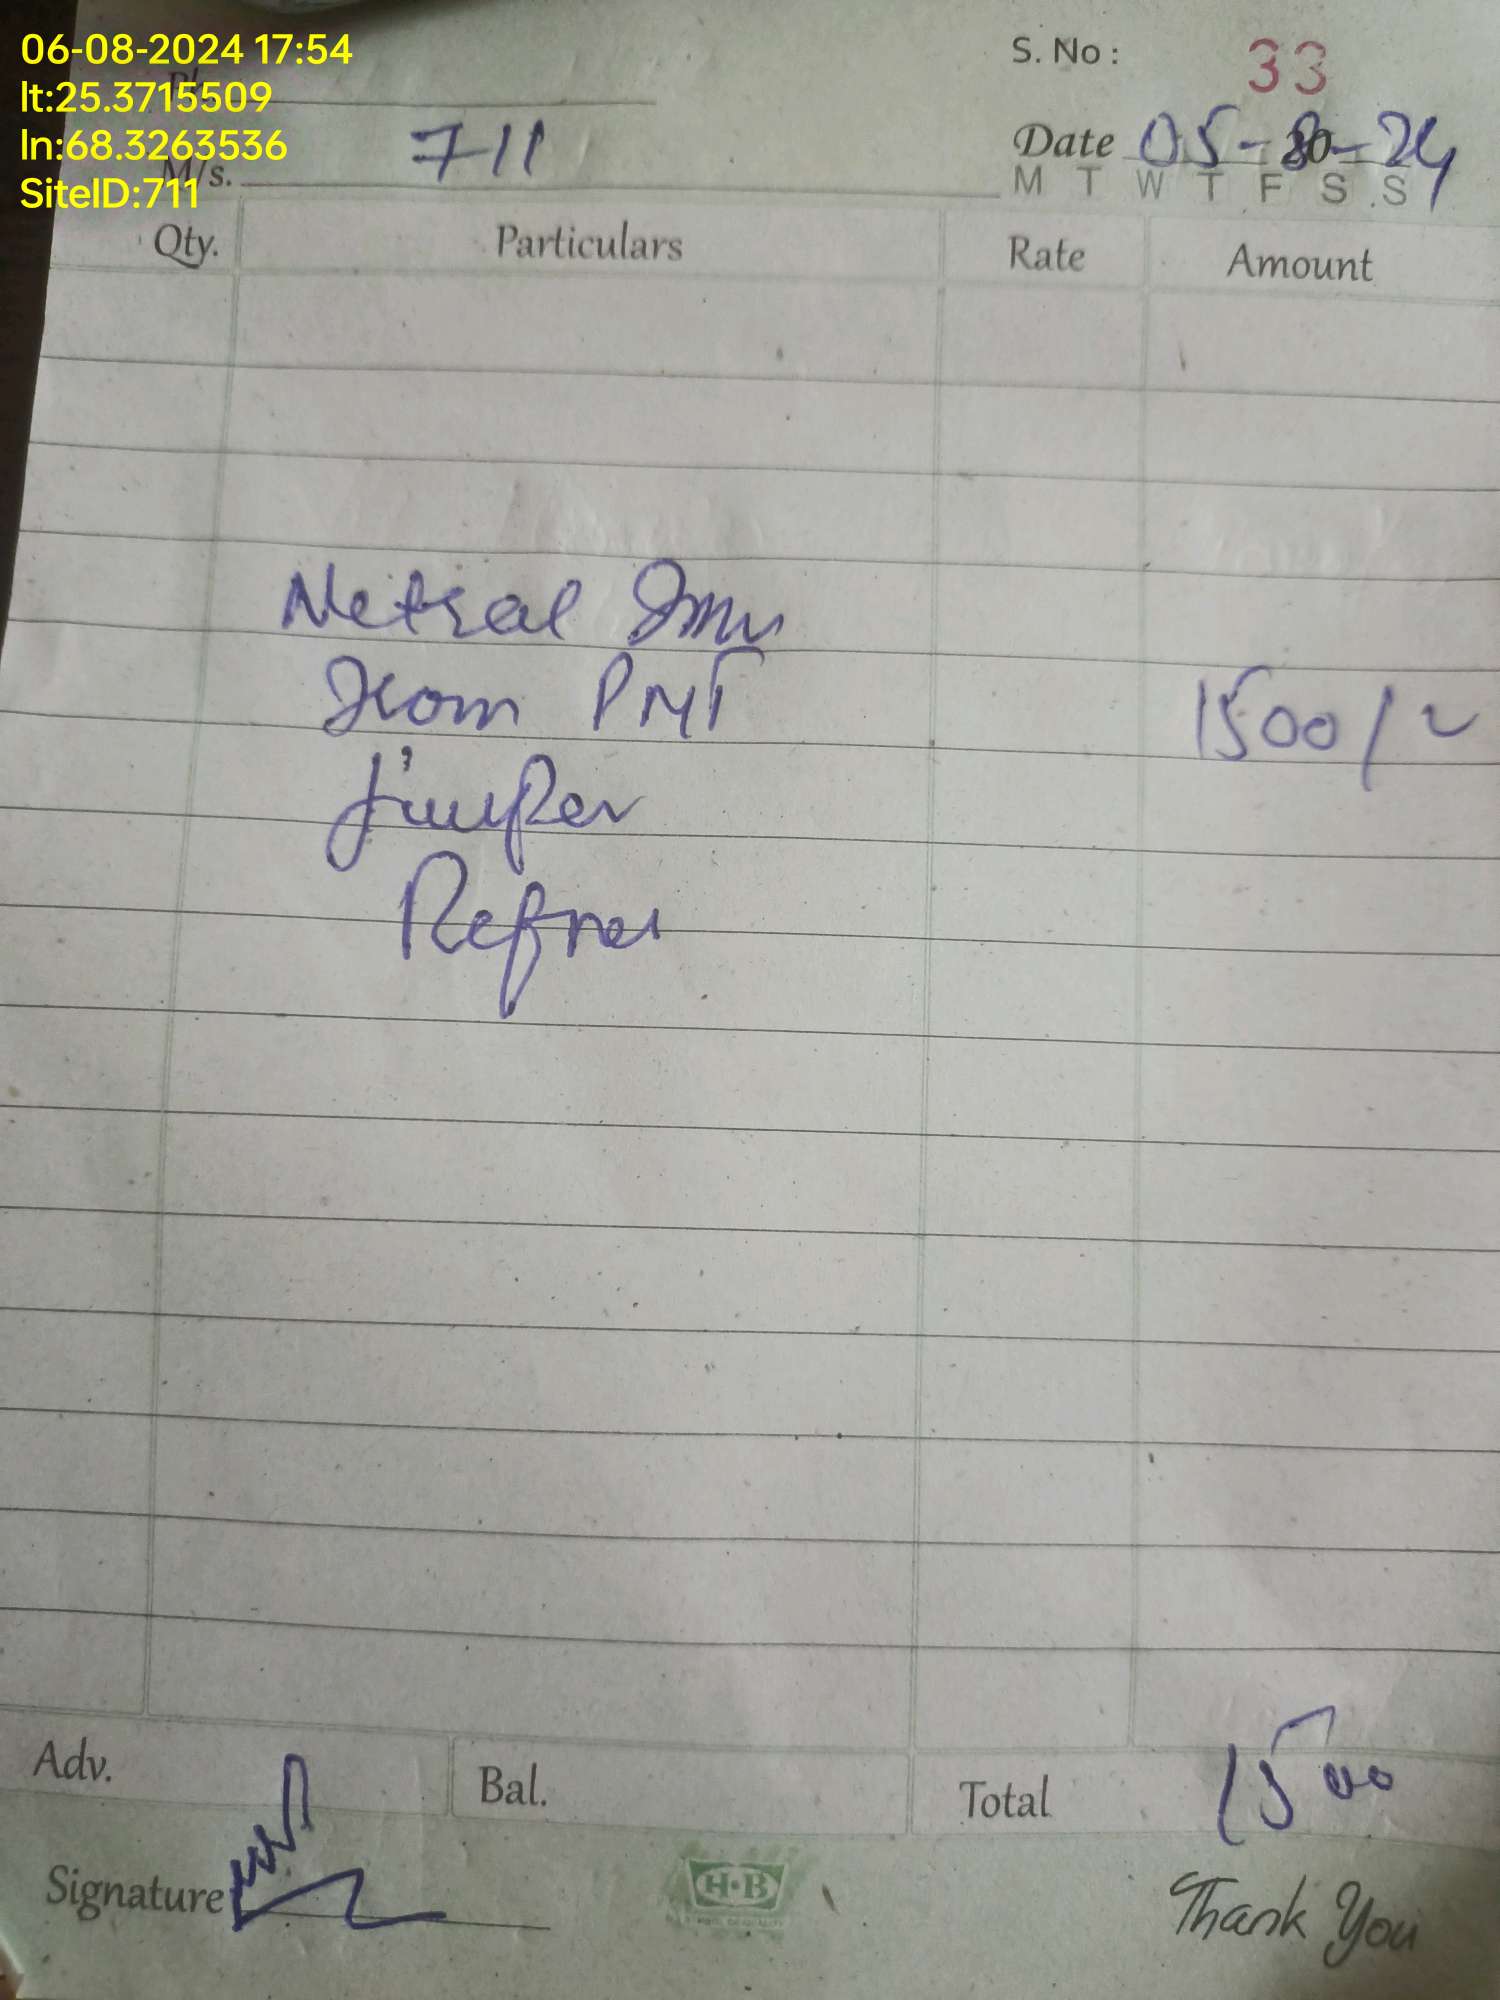 06-08-2024 17:54
lt:25.3715509
ln:68.3263536
SiteID:711
S. No : 33
M/s. 711
Date 05-8-24
20
M T W T F S S
Qty. Particulars Rate Amount
Netral
From PMT 1500/-
Adv. Bal. Total 1500
Signature
H·B
Thank You